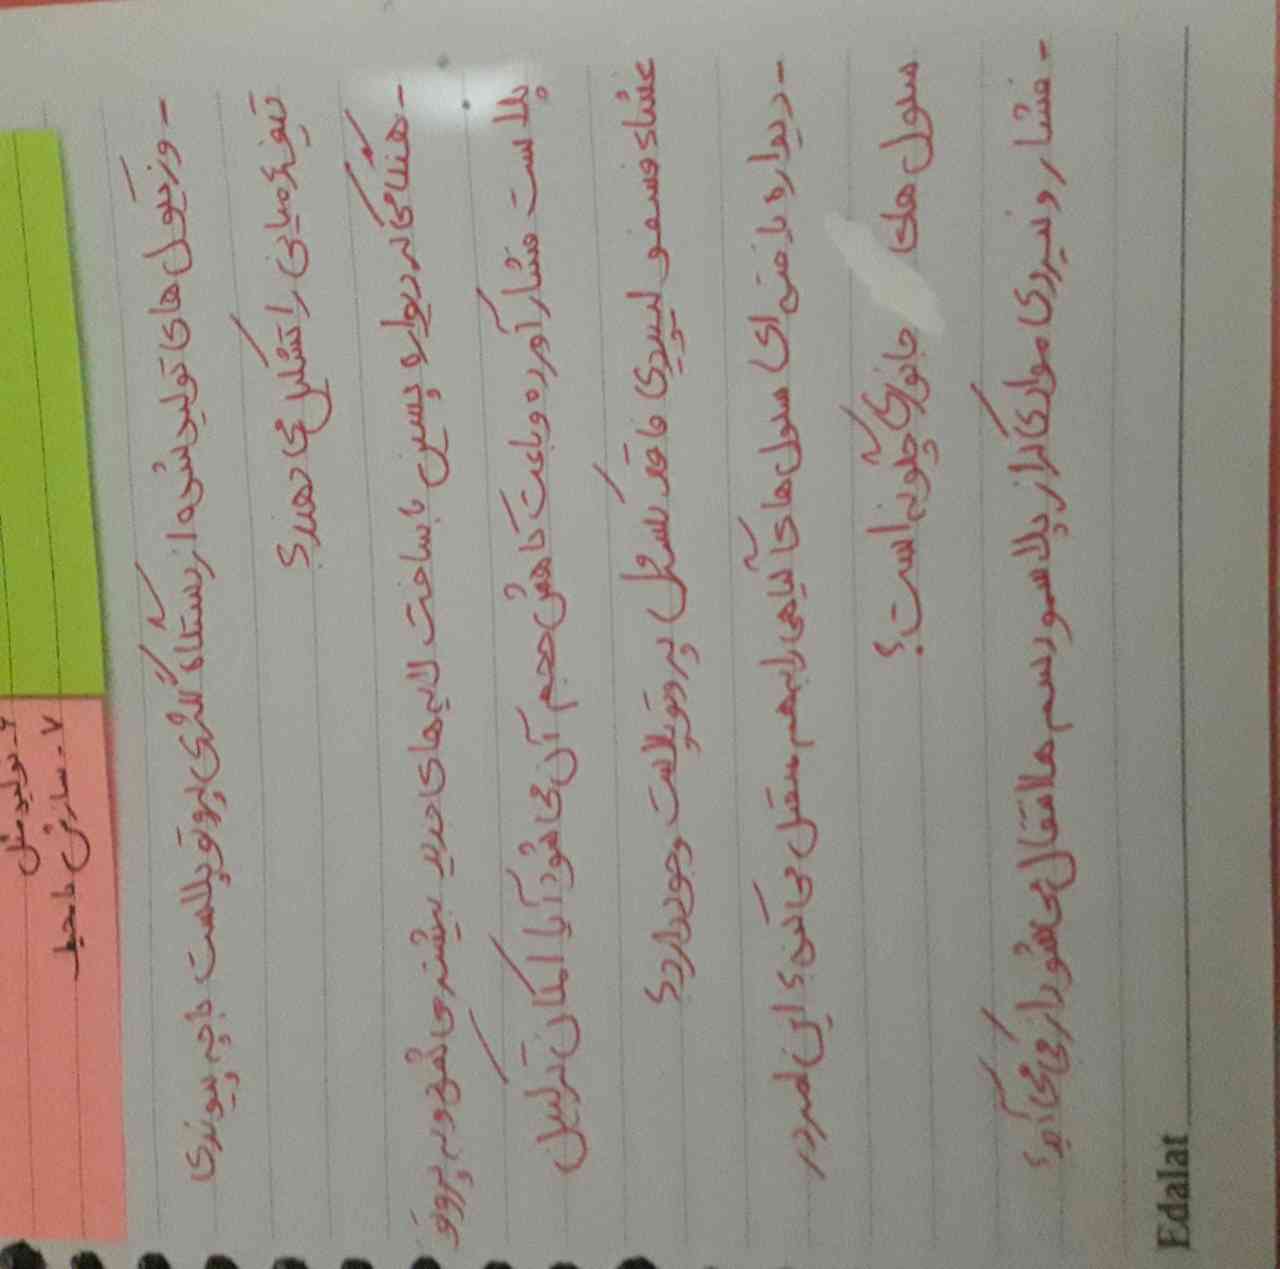 ۶- تولید مثل
۷- سازش با محیط
- وزیکول های تولید شده از دستگاه گلژی پروتوپلاست با چه پیوندی
تیغه میانی را تشکیل می دهند؟
- هنگامی که دیواره پسین با ساخت لایه های جدید بیشتر می شود و به پروتو
پلاست فشار آورده و باعث کاهش حجم آن می شود آیا امکان تبدیل
غشای فسفولیپیدی فاقد شکل پروتوپلاست وجود دارد؟
- دیواره یاخته ای سلول های گیاهی را به هم متصل می کند؟ این امر در
سلول های جانوری چگونه است؟
- فشار و نیروی موادی که از پلاسمودسم ها انتقال می شود از کجا می آید؟
Edalat